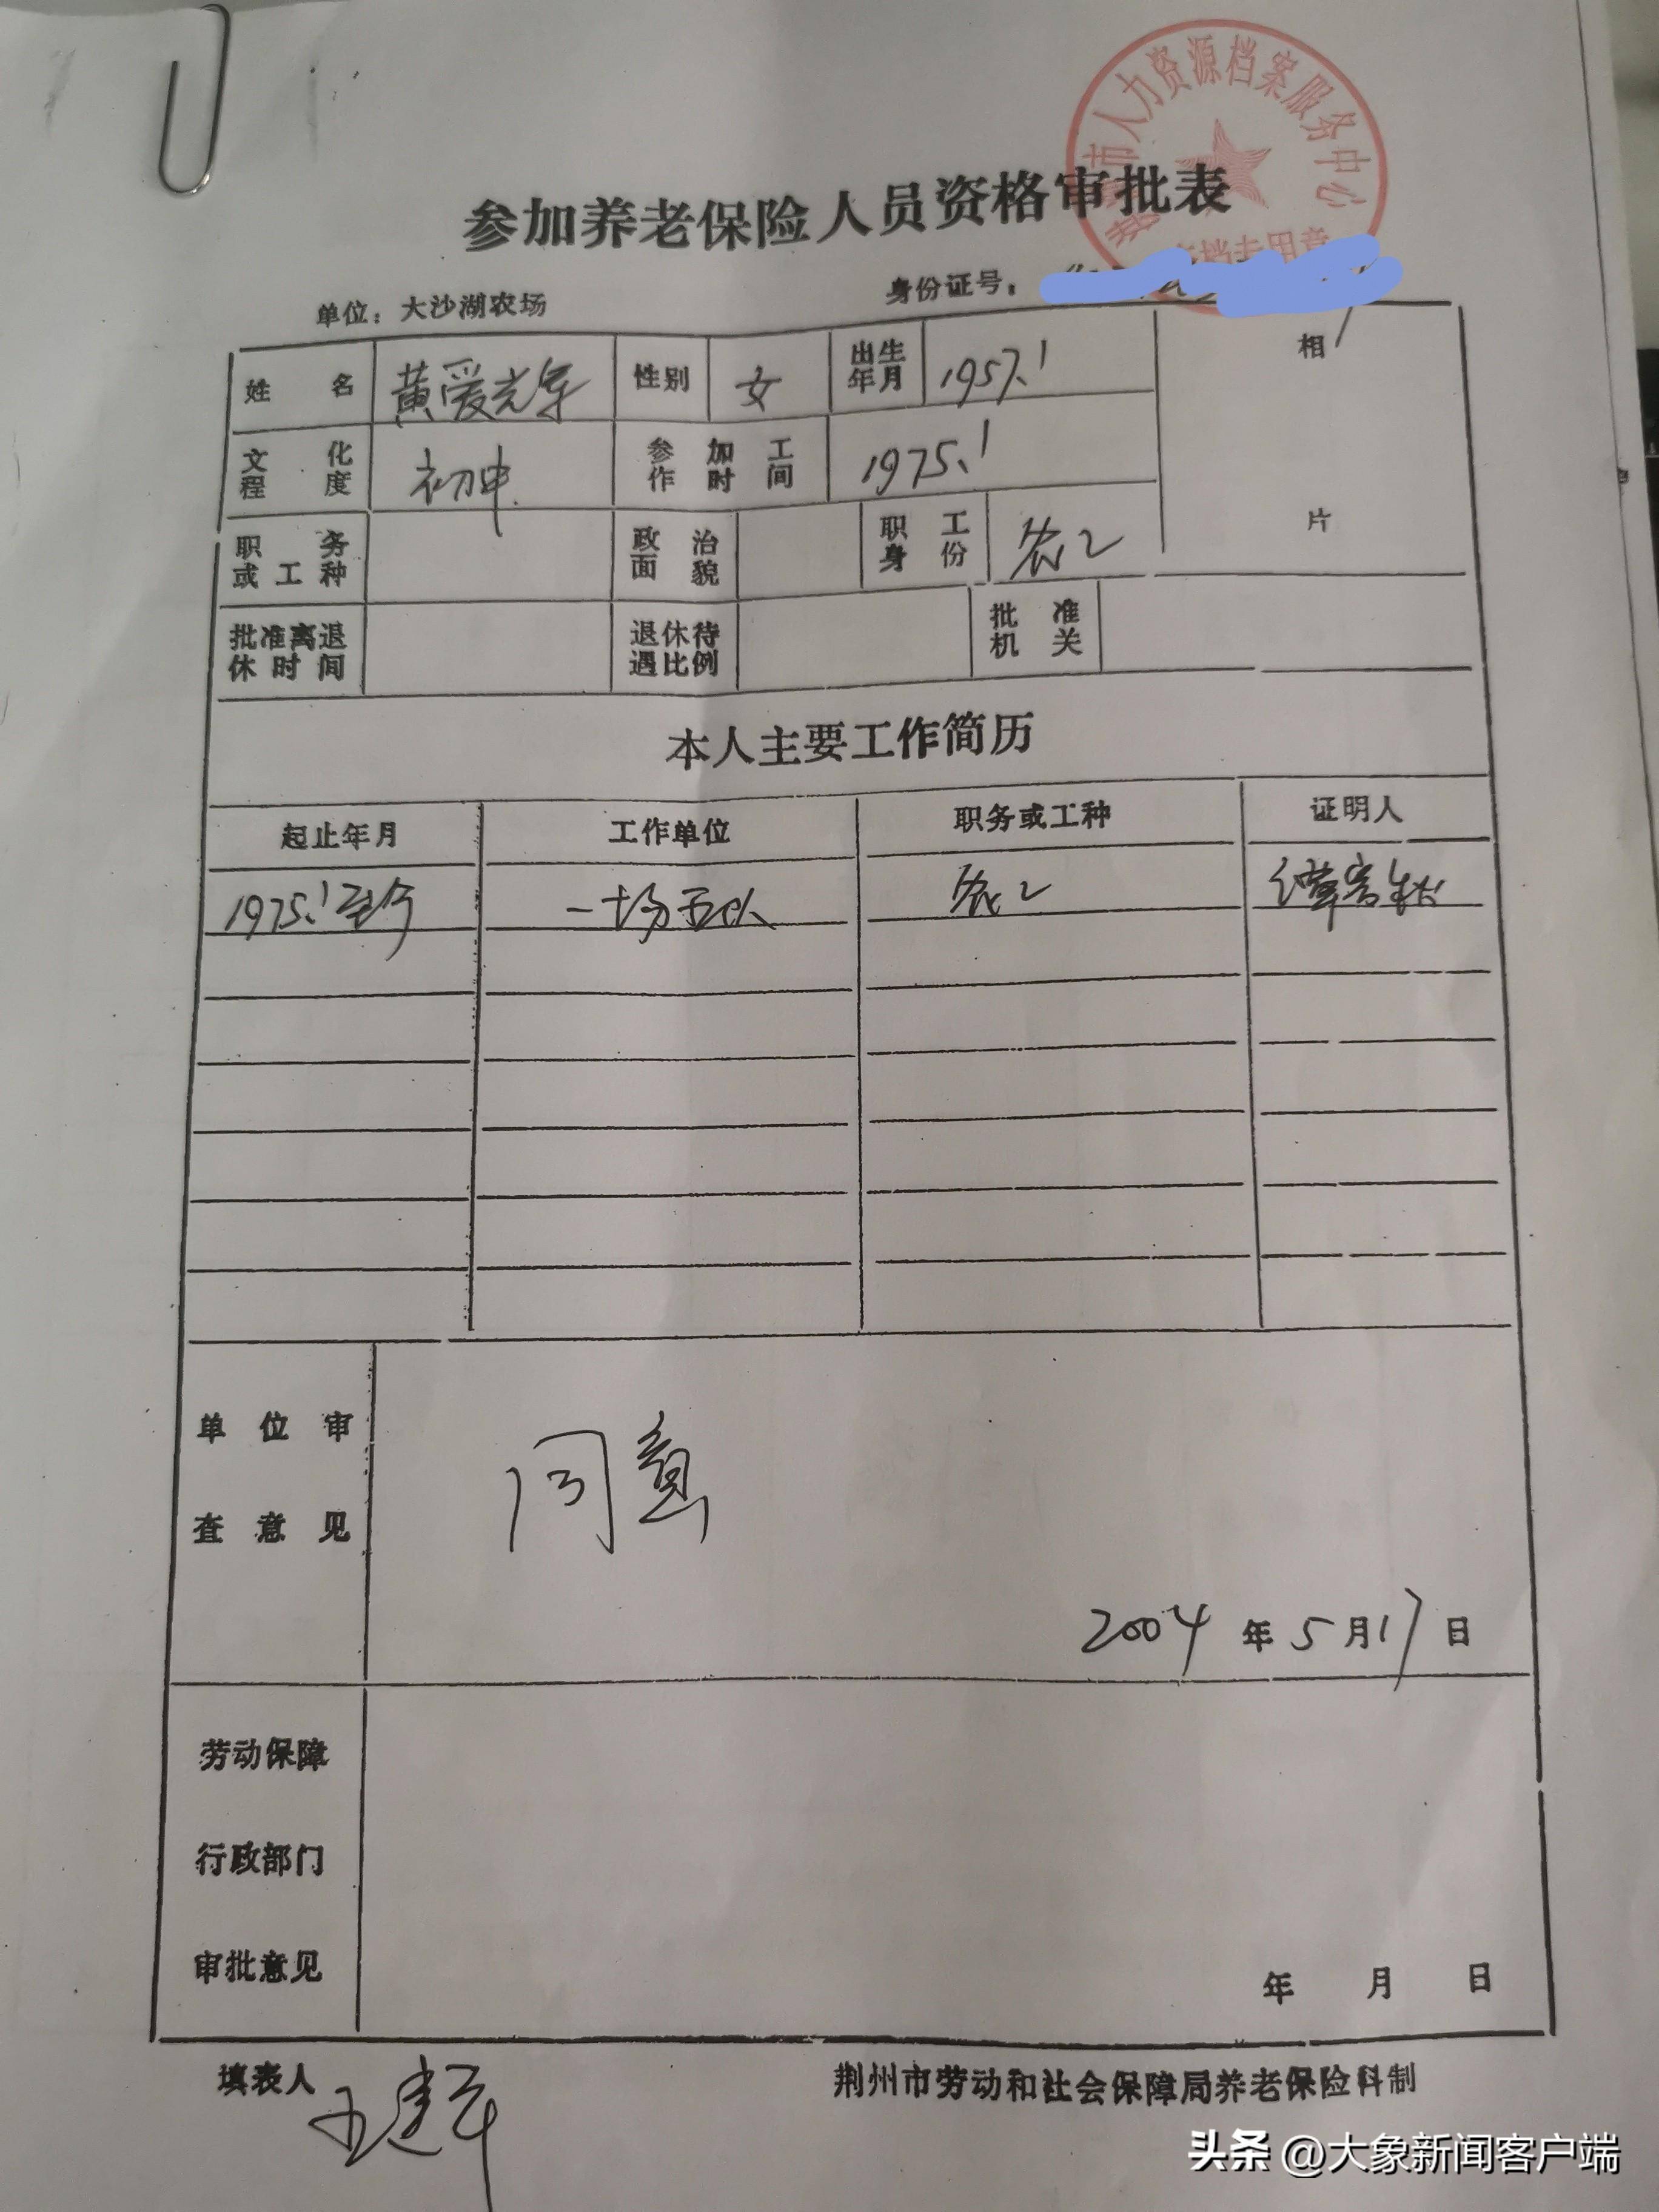 市人力资源档案服务中心
参加养老保险人员资格审批表
单位：大沙湖农场 身份证号：
姓名 黄爱 性别 女 出生年月 1957.1 相片
文化程度 初中 参加工作时间 1975.1
职务或工种 政治面貌 职工身份 农工
批准离退休时间 退休待遇比例 批准机关
本人主要工作简历
起止年月 工作单位 职务或工种 证明人
1975.1至今 一场五队 农工
单位审查意见 同意
2004年5月17日
劳动保障行政部门审批意见
年 月 日
填表人 荆州市劳动和社会保障局养老保险科制
头条 @大象新闻客户端